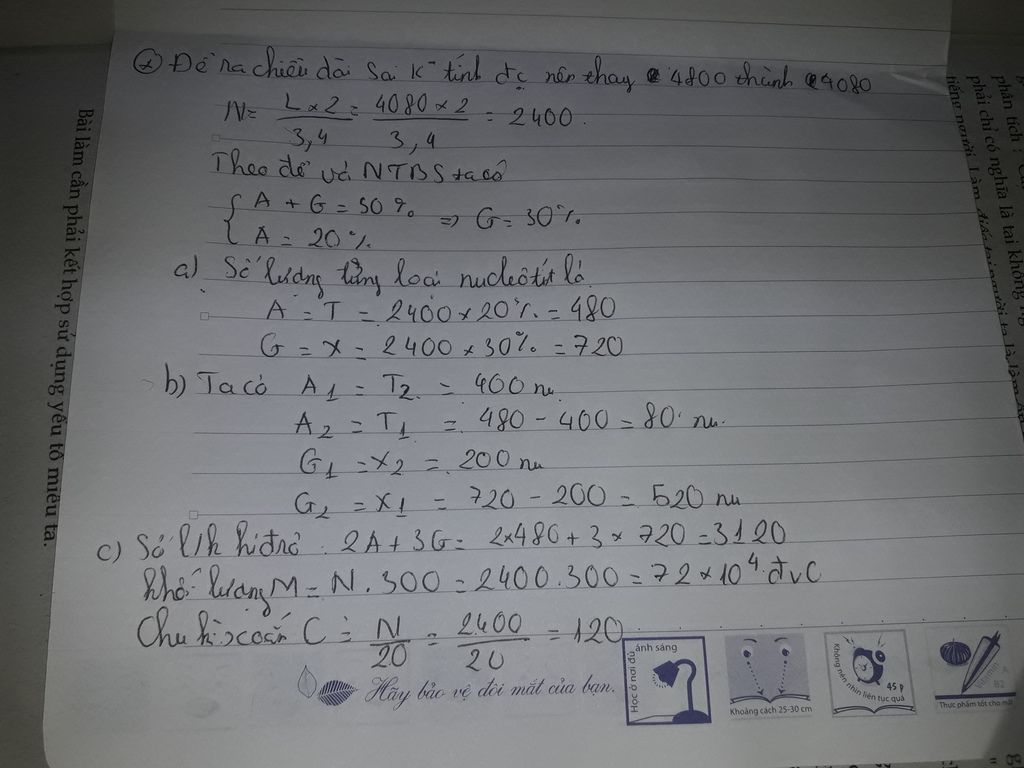 * Đề ra chiều dài sai k tính đc nên thay 4800 thành 4080
N = L x 2 / 3,4 = 4080 x 2 / 3,4 = 2400.
Theo đề và NTBS ta có
{ A + G = 50 %
A = 20 % => G = 30 %
a) Số lượng từng loại nucleôtit là
A = T = 2400 x 20 % = 480
G = X = 2400 x 30 % = 720
b) Ta có A1 = T2 = 400 nu
A2 = T1 = 480 - 400 = 80 nu.
G1 = X2 = 200 nu
G2 = X1 = 720 - 200 = 520 nu
c) Số l/k hiđrô : 2A + 3G = 2x480 + 3 x 720 = 3120
khối lượng M = N . 300 = 2400.300 = 72 x 10^4 đvC
Chu kì xoắn C = N / 20 = 2400 / 20 = 120
Hãy bảo vệ đôi mắt của bạn.
Học ở nơi đủ ánh sáng
Khoảng cách 25-30 cm
Không nên nhìn liên tục quá 45 p
Thực phẩm tốt cho mắt
Bài làm cần phải kết hợp sử dụng yếu tố miêu tả.
phân tích :
phải chỉ có nghĩa là tai không
tiếng người.